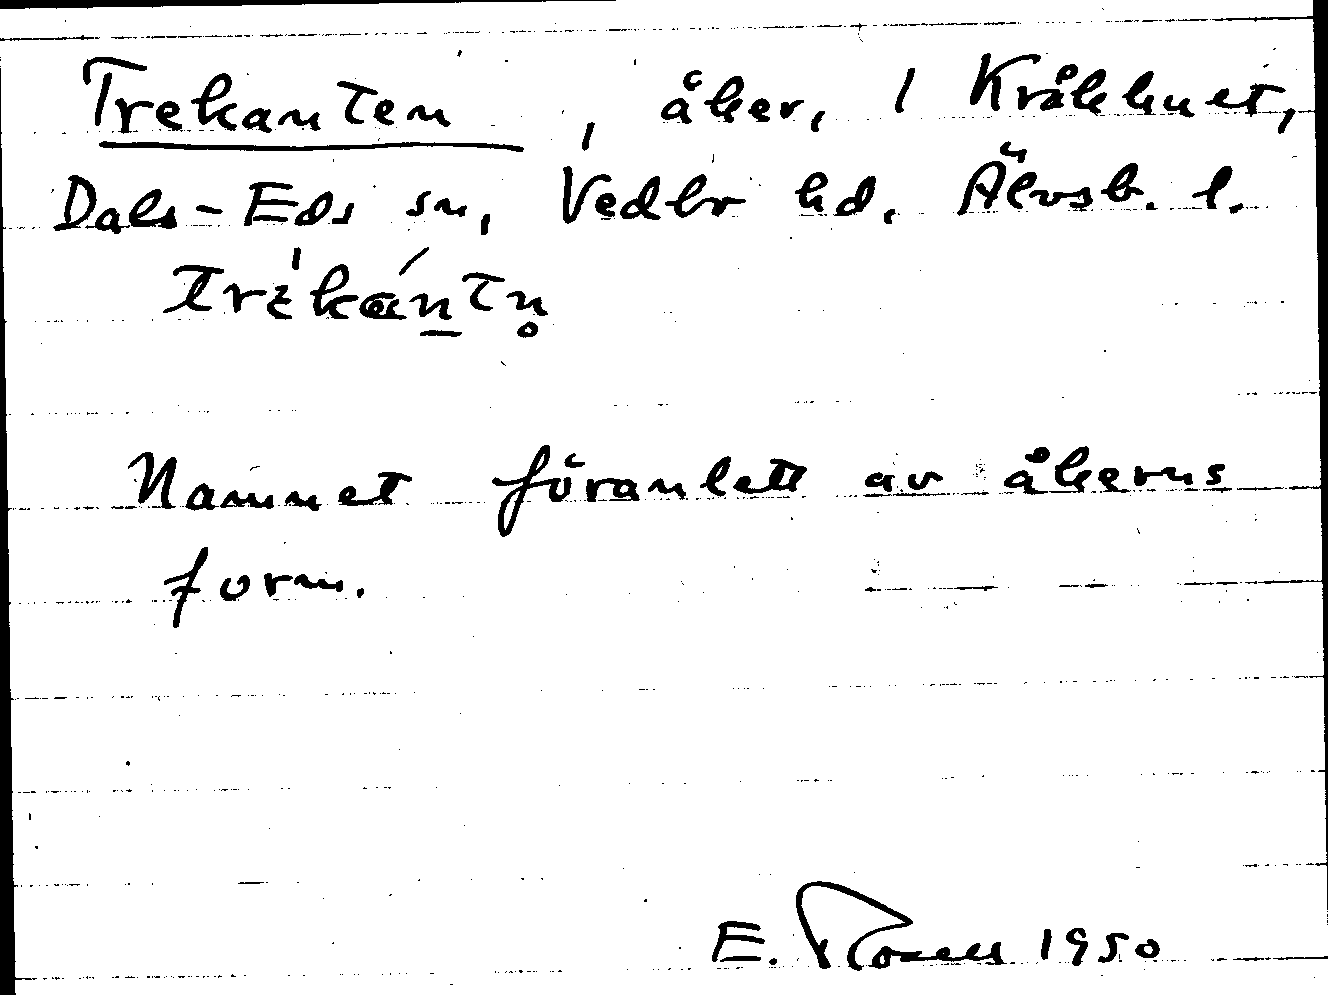 Trekanten, åker, 1 Kråkhuet,
Dals-Eds sn, Vedbo hd. Älvsb. l.
Namnet föranlett av åkerns
form.
E. Rosell 1950